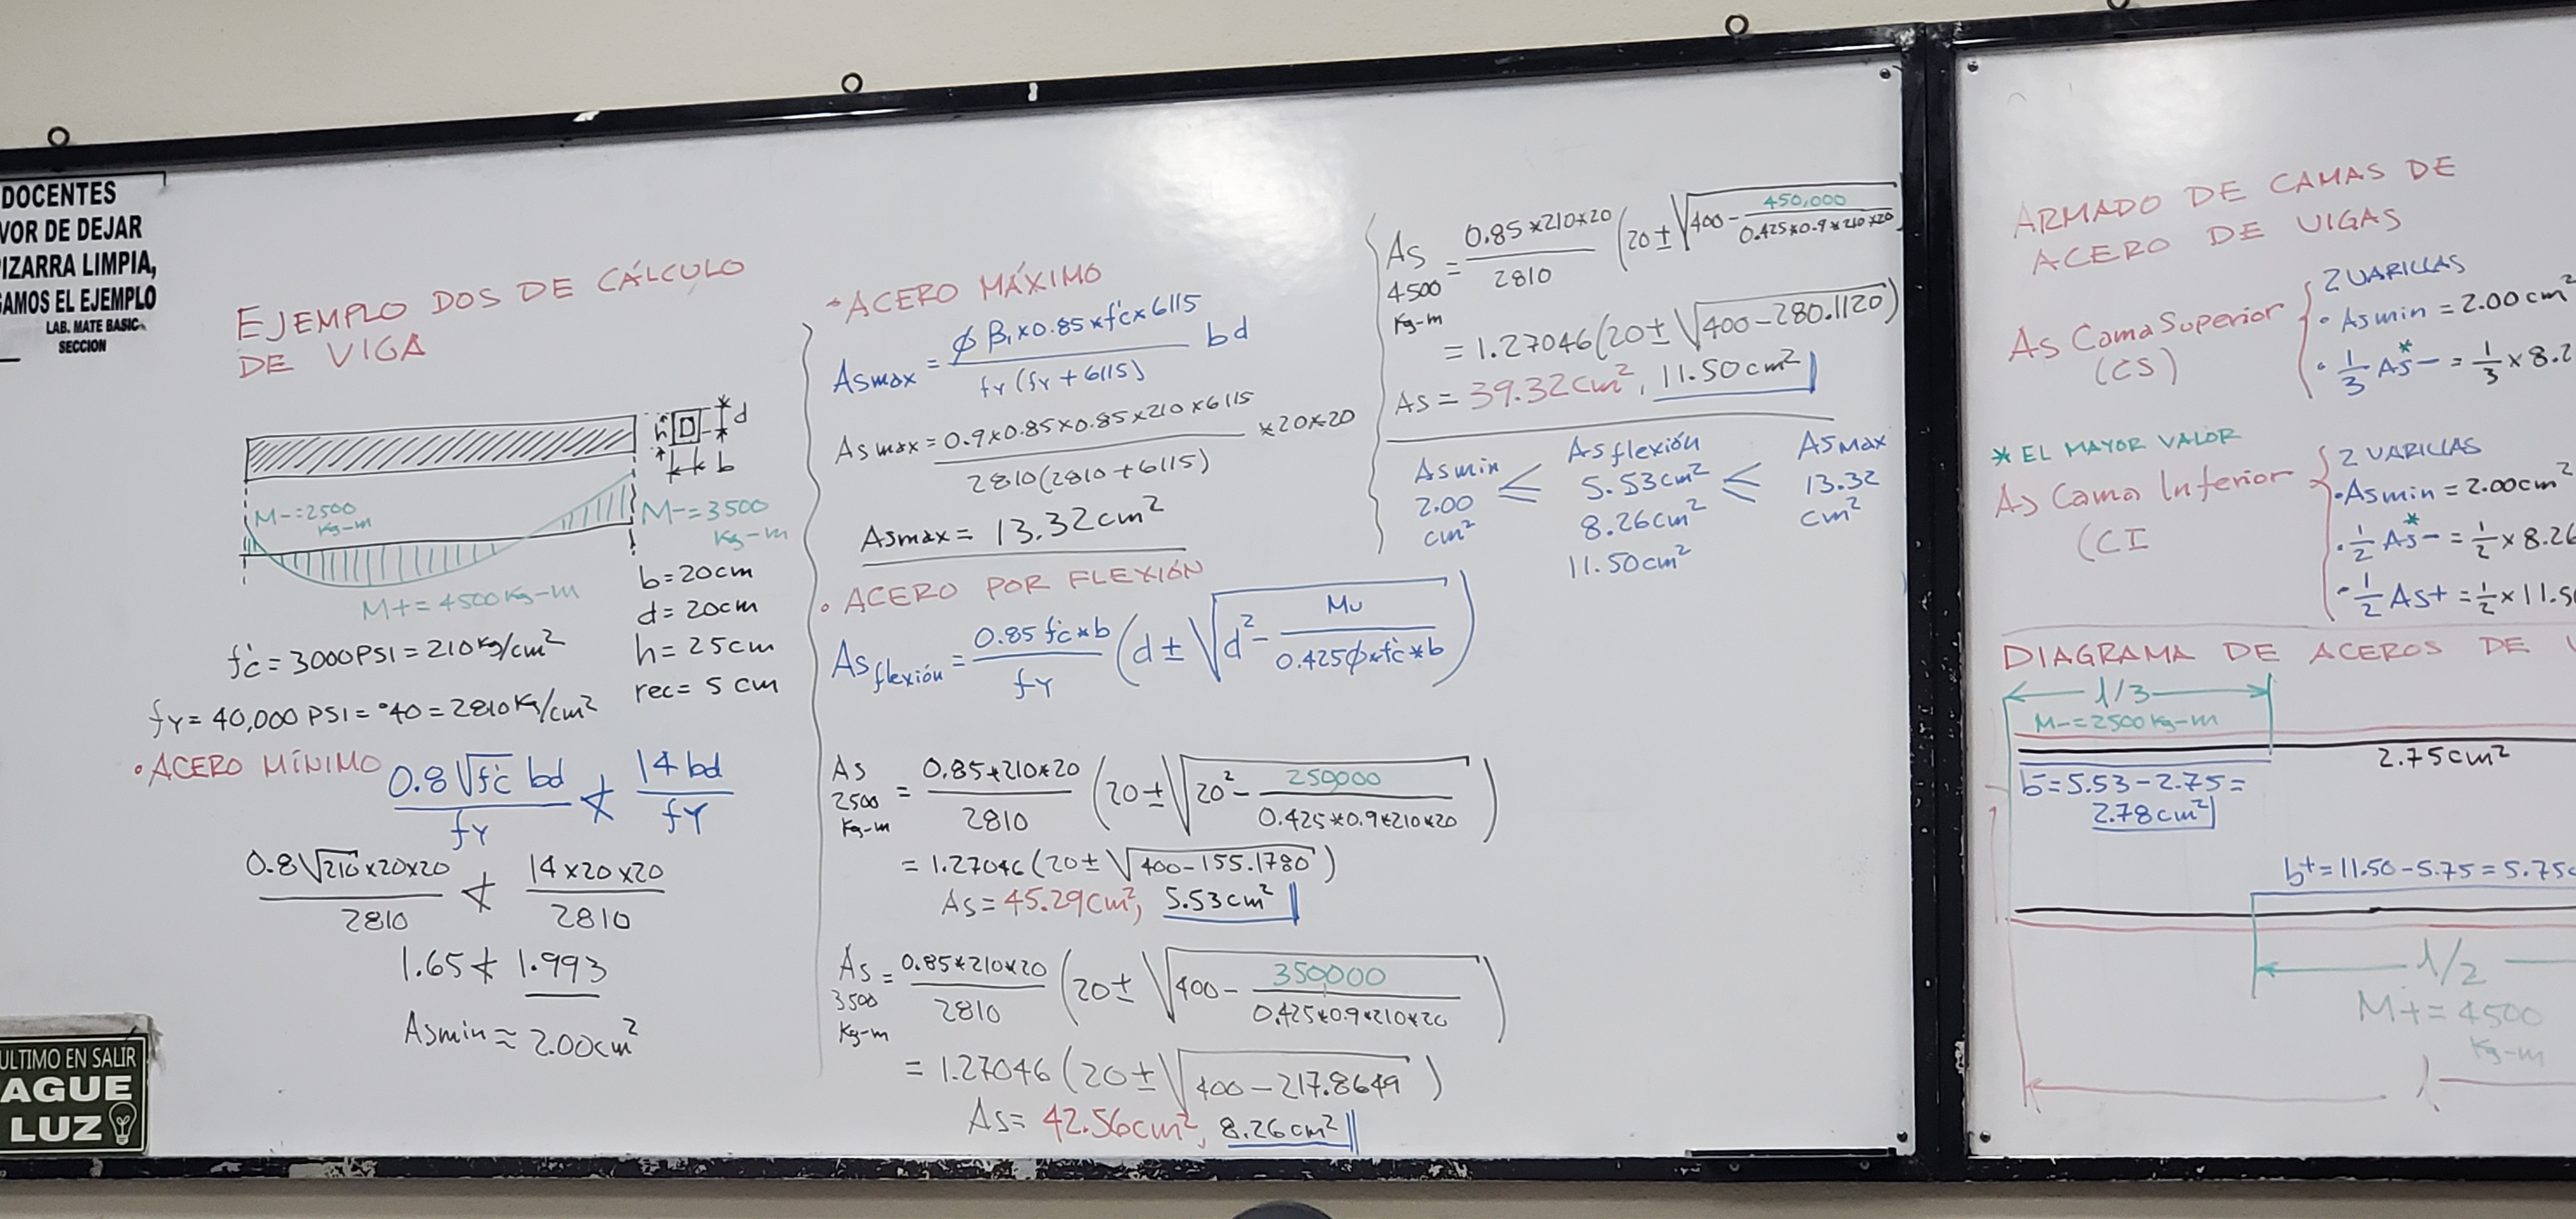 DOCENTES
VOR DE DEJAR
IZARRA LIMPIA,
GAMOS EL EJEMPLO
LAB. MATE BASIC
SECCION
ULTIMO EN SALIR
AGUE
LUZ
EJEMPLO DOS DE CÁLCULO
DE VIGA
h d
b
M-=2500
Kg-m
M-=3500
Kg-m
M+=4500Kg-m
b=20cm
d=20cm
h=25cm
rec=5cm
f'c=3000PSI=210Kg/cm²
fy=40,000PSI=°40=2810Kg/cm²
• ACERO MÍNIMO
0.8√f'c bd / fy ≮ 14bd / fy
0.8√210×20×20 / 2810 ≮ 14×20×20 / 2810
1.65 ≮ 1.993
Asmin≈2.00cm²
• ACERO MÁXIMO
Asmax = ϕβ₁×0.85×f'c×6115 / fy(fy+6115) bd
Asmax = 0.9×0.85×0.85×210×6115 / 2810(2810+6115) ×20×20
Asmax = 13.32cm²
• ACERO POR FLEXIÓN
As flexión = 0.85f'c*b / fy (d±√d²- Mu / 0.425ϕ*f'c*b)
As 2500 Kg-m = 0.85*210*20 / 2810 (20±√20²- 250,000 / 0.425*0.9*210*20)
= 1.27046(20±√400-155.1780)
As=45.29cm², 5.53cm²
As 3500 Kg-m = 0.85*210*20 / 2810 (20±√400- 350,000 / 0.425*0.9*210*20)
= 1.27046(20±√400-217.8649)
As=42.56cm², 8.26cm²
As 4500 Kg-m = 0.85*210*20 / 2810 (20±√400- 450,000 / 0.425*0.9*210*20)
= 1.27046(20±√400-280.1120)
As=39.32cm², 11.50cm²
Asmin ≤ Asflexión ≤ Asmax
2.00 5.53cm² 13.32
cm² 8.26cm² cm²
11.50cm²
ARMADO DE CAMAS DE
ACERO DE VIGAS
As Cama Superior
(CS)
2 VARILLAS
• Asmin=2.00cm²
• 1/3 As*- = 1/3×8.2
* EL MAYOR VALOR
As Cama Inferior
(CI
2 VARILLAS
• Asmin=2.00cm²
• 1/2 As*- = 1/2×8.26
• 1/2 As+ = 1/2×11.5
DIAGRAMA DE ACEROS DE
l/3
M-=2500Kg-m
2.75cm²
b-=5.53-2.75=
2.78cm²
b+=11.50-5.75=5.75c
l/2
M+=4500
Kg-m
l